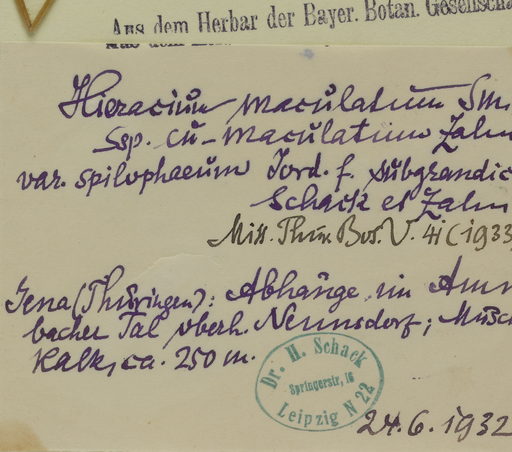 Aus dem Herbar der Bayer. Botan. Gesellscha
Hieracium maculatum Sm.
ssp. cu-maculatum Zahn
var. spilophaeum Jord. f. subgrandic
Schack et Zahn
Mitt. Thür. Bot. V. 41 (1933
Jena (Thüringen): Abhänge im Amm
bacher Tal oberh. Nennsdorf; Musch
Kalk, ca. 250 m.
Dr. H. Schack
Springerstr. 16
Leipzig N 22
24.6.1932